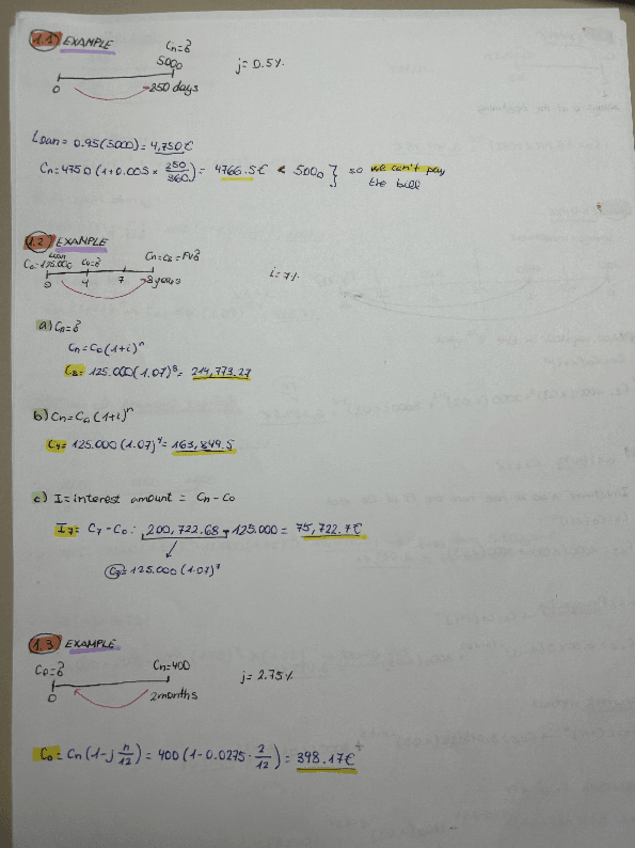 1.1) EXAMPLE
Cn=?
5000
j=0.5%
0
250 days
Loan = 0.95(5000) = 4,750€
Cn = 4750 (1+0.005 × 250/360) = 4766.5€ < 5000 } so we can't pay
the bill
1.2) EXAMPLE
Loan
C0=125.000 C4=? Cn=C8=FV?
i=7%
0 4 7 8 years
a) Cn=?
Cn=C0(1+i)^n
C8= 125.000(1.07)^8= 214,773.27
b) Cn=C0(1+i)^n
C4= 125.000(1.07)^4= 163,849.5
c) I=interest amount = Cn-C0
I7= C7-C0: 200,722.68-125.000= 75,722.7€
C7=125.000(1.07)^7
1.3) EXAMPLE
C0=? Cn=400
j=2.75%
0 2months
C0= Cn(1-j n/12)= 400(1-0.0275· 2/12)= 398.17€